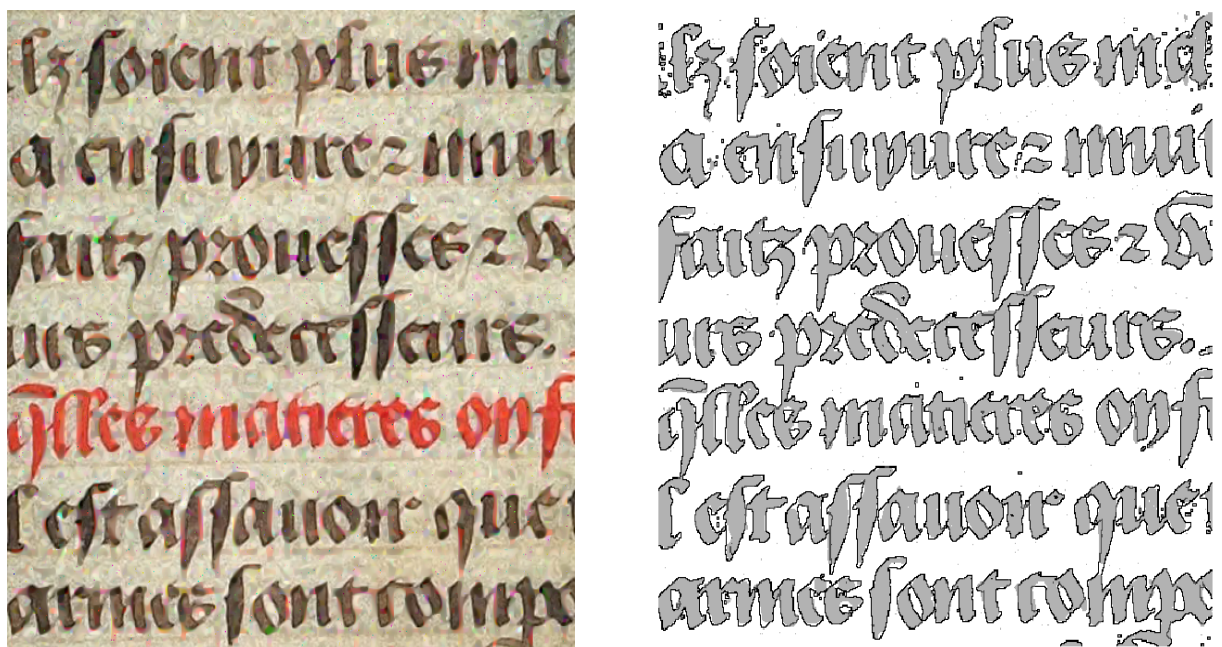 lz soient plus
a ensuyure z
faitz prouesses z
urs predecesseurs.
q̄lles matieres on
l est assauoir que
armes sont compo
lz soient plus
a ensuyure z
faitz prouesses z
urs predecesseurs.
q̄lles matieres on
l est assauoir que
armes sont compo